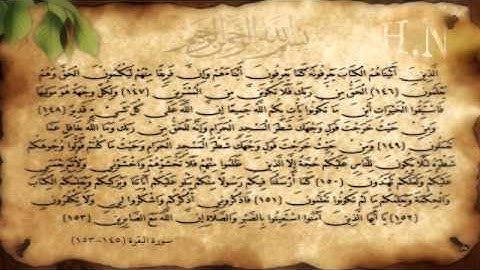 بسم الله الرحمن الرحيم
H.N
الذين آتيناهم الكتاب يعرفونه كما يعرفون أبناءهم وإن فريقا منهم ليكتمون الحق وهم
يعلمون (١٤٦) الحق من ربك فلا تكونن من الممترين (١٤٧) ولكل وجهة هو موليها
فاستبقوا الخيرات أين ما تكونوا يأت بكم الله جميعا إن الله على كل شيء قدير (١٤٨)
ومن حيث خرجت فول وجهك شطر المسجد الحرام وإنه للحق من ربك وما الله بغافل عما
تعملون (١٤٩) ومن حيث خرجت فول وجهك شطر المسجد الحرام وحيث ما كنتم فولوا وجوهكم
شطره لئلا يكون للناس عليكم حجة إلا الذين ظلموا منهم فلا تخشوهم واخشوني ولأتم نعمتي
عليكم ولعلكم تهتدون (١٥٠) كما أرسلنا فيكم رسولا منكم يتلو عليكم آياتنا ويزكيكم ويعلمكم الكتاب
والحكمة ويعلمكم ما لم تكونوا تعلمون (١٥١) فاذكروني أذكركم واشكروا لي ولا تكفرون
(١٥٢) يا أيها الذين آمنوا استعينوا بالصبر والصلاة إن الله مع الصابرين (١٥٣)
سورة البقرة (١٤٥-١٥٣)